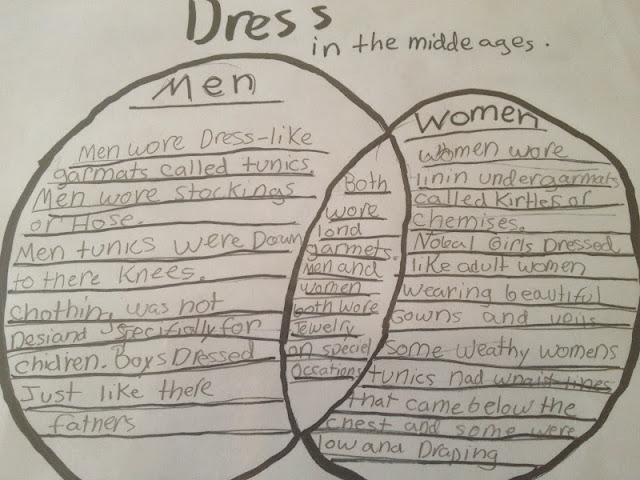 Dress
in the midde ages.
Men
Men wore Dress-like
garmats called tunics.
Men wore stockings
or Hose.
Men tunics were Down
to there Knees.
chothing was not
Desiand specifially for
chidren. Boys Dressed
Just like there
fathers
Both
wore
lond
garmets.
Men and
women
both wore
Jewelry
on speciel
Occations
Women
women wore
linin undergarmats
called Kirtles or
chemises.
Nobal Girls Dressed
like adult women
wearing beautiful
Gowns and veils
Some weathy womens
tunics had wrait lines
that came below the
chest and some were
low and Draping